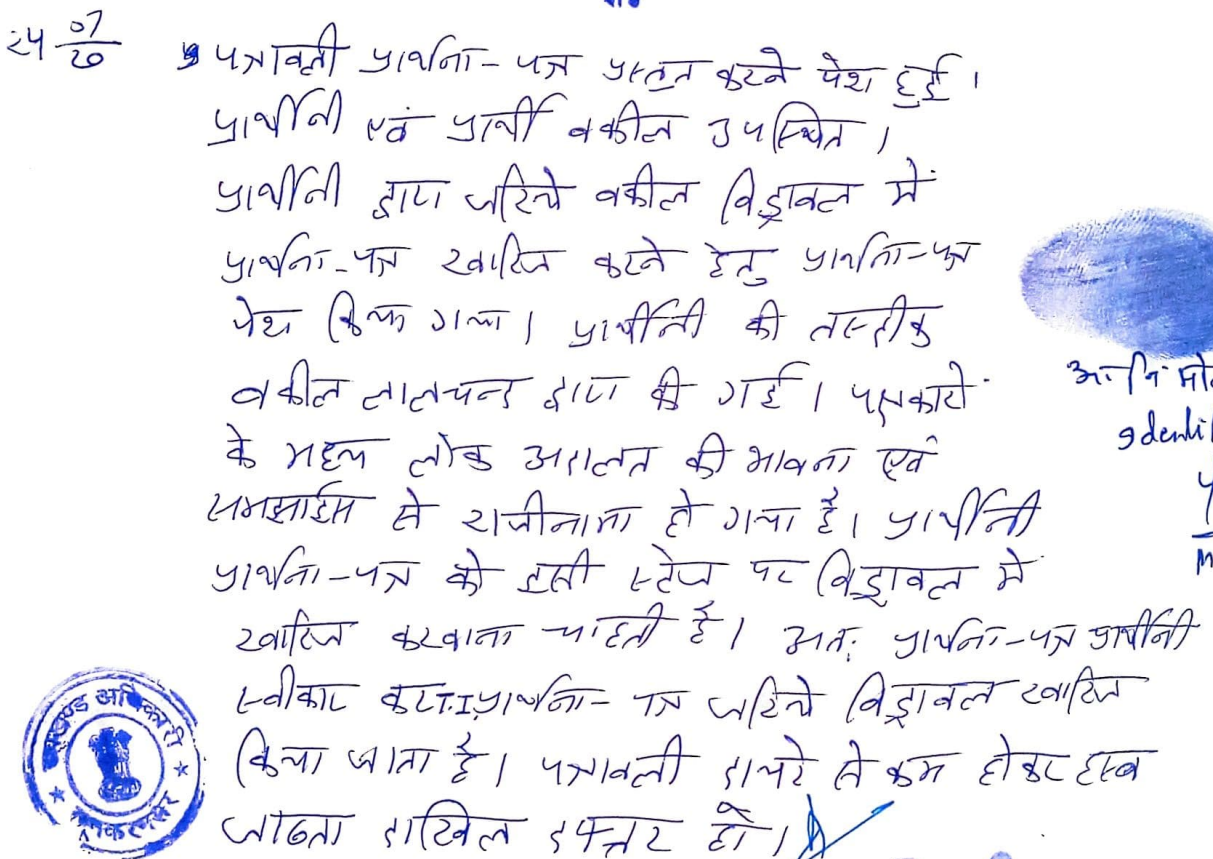 24 07/20 पत्रावली प्रार्थना-पत्र प्रस्तुत करने पेश हुई।
प्रार्थीनी एवं प्रार्थी वकील उपस्थित।
प्रार्थीनी द्वारा जरिये वकील विड्रावल में
प्रार्थना-पत्र खारिज करने हेतु प्रार्थना-पत्र
पेश किया गया। प्रार्थीनी की तस्दीक
वकील लालचन्द द्वारा की गई। पक्षकारो
के मध्य लोक अदालत की भावना एवं
समझाईस से राजीनामा हो गया है। प्रार्थीनी
प्रार्थना-पत्र को इसी स्टेज पर विड्रावल में
खारिज करवाना चाहती है। अतः प्रार्थना-पत्र प्रार्थीनी
स्वीकार कर T.I. प्रार्थना-पत्र जरिये विड्रावल खारिज
किया जाता है। पत्रावली दायरे से कम होकर हस्ब
जाब्ता दाखिल दफ्तर हो।
अधिकारी